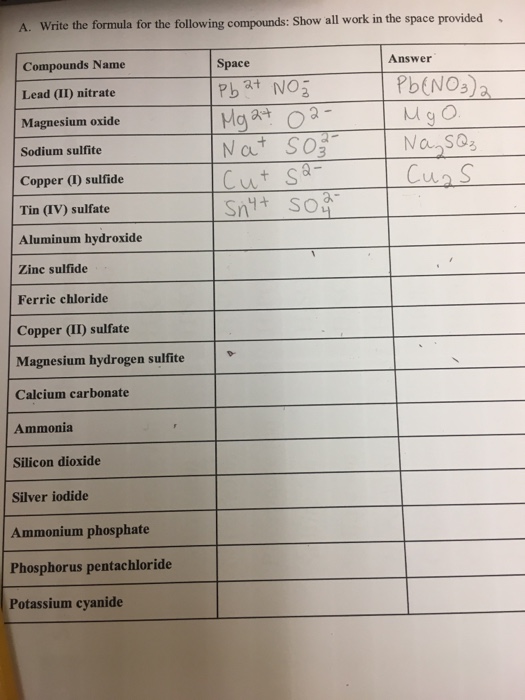 A. Write the formula for the following compounds: Show all work in the space provided
Compounds Name Space Answer
Lead (II) nitrate Pb²⁺ NO₃⁻ Pb(NO₃)₂
Magnesium oxide Mg²⁺ O²⁻ MgO.
Sodium sulfite Na⁺ SO₃²⁻ Na₂SO₃
Copper (I) sulfide Cu⁺ S²⁻ Cu₂S
Tin (IV) sulfate Sn⁴⁺ SO₄²⁻
Aluminum hydroxide
Zinc sulfide
Ferric chloride
Copper (II) sulfate
Magnesium hydrogen sulfite
Calcium carbonate
Ammonia
Silicon dioxide
Silver iodide
Ammonium phosphate
Phosphorus pentachloride
Potassium cyanide